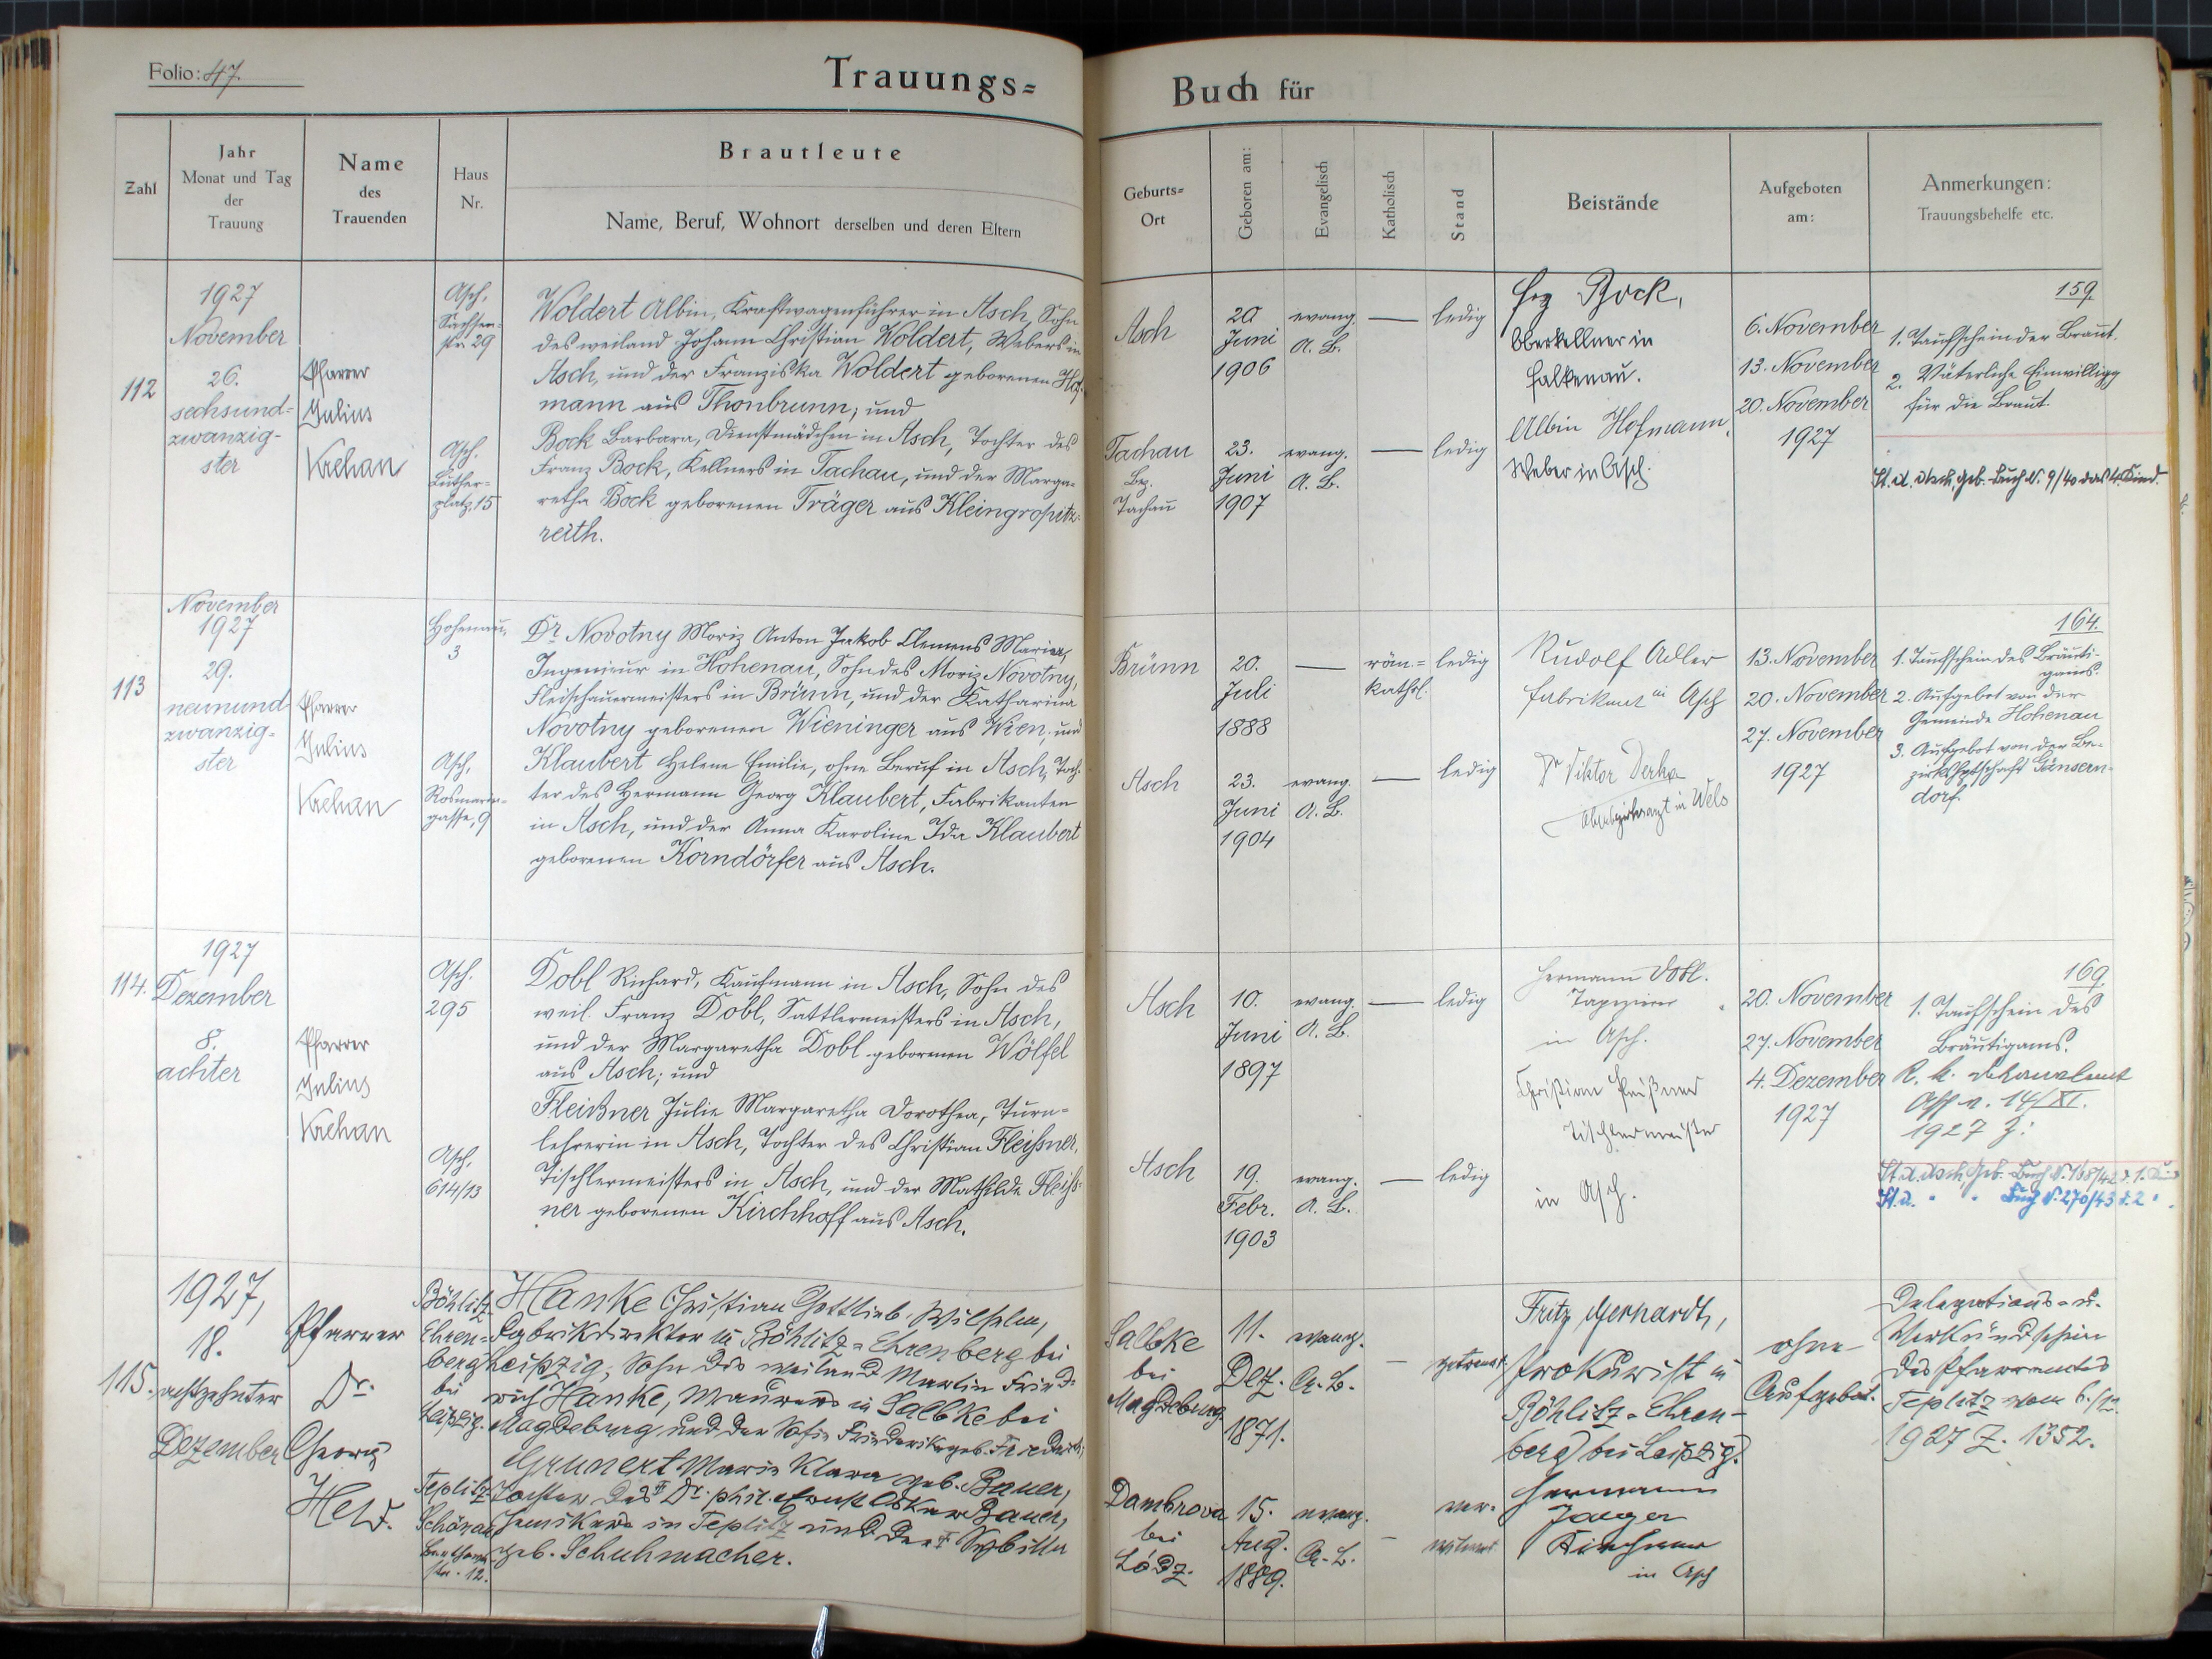 Folio: 47.
Trauungs=
Buch für
Zahl
Jahr
Monat und Tag
der
Trauung
Name
des
Trauenden
Haus
Nr.
Brautleute
Name, Beruf, Wohnort derselben und deren Eltern
Geburts=
Ort
Geboren am:
Evangelisch
Katholisch
Stand
Beistände
Aufgeboten
am:
Anmerkungen:
Trauungsbehelfe etc.
112
1927
November
26.
sechsund-
zwanzig-
ster
Pfarrer
Julius
Krehan
Asch,
Sachsen-
str. 29
Woldert Albin, Kraftwagenführer in Asch, Sohn
des weiland Johann Christian Woldert, Webers in
Asch, und der Franziska Woldert geborenen Hof-
mann aus Thonbrunn; und
Asch,
Luther-
platz, 15
Bock Barbara, Dienstmädchen in Asch, Tochter des
Franz Bock, Kellners in Tachau, und der Marga-
retha Bock geborenen Träger aus Kleingropitz-
reith.
Asch
20
Juni
1906
evang.
A. B.
—
ledig
Tachau
Bez.
Tachau
23.
Juni
1907
evang.
A. B.
—
ledig
Bock,
Oberkellner in
Falkenau.
Albin Hofmann,
Weber in Asch.
6. November
13. November
20. November
1927
159.
1. Taufschein der Braut.
2. Väterliche Einwilligg
für die Braut.
St. A. Asch, Geb.-Buch N. 9/40 das 4. Kind.
113
November
1927
29.
neunund-
zwanzig-
ster
Pfarrer
Julius
Krehan
Hohenau,
3
Dr. Novotny Moriz Anton Jakob Clemens Maria,
Ingenieur in Hohenau, Sohn des Moriz Novotny,
Fleischauermeisters in Brünn, und der Katharina
Novotny geborenen Wieninger aus Wien; und
Asch,
Rosmarin-
gasse, 9
Klaubert Helene Emilie, ohne Beruf in Asch, Toch-
ter des Hermann Georg Klaubert, Fabrikanten
in Asch, und der Anna Karoline Ida Klaubert
geborenen Korndörfer aus Asch.
Brünn
20.
Juli
1888
—
röm.=
kathol.
ledig
Asch
23.
Juni
1904
evang.
A. B.
—
ledig
Rudolf Adler
Fabrikant in Asch
Dr Viktor Derka
Oberbezirksarzt in Wels
13. November
20. November
27. November
1927
164.
1. Taufschein des Bräuti-
gams.
2. Aufgebot von der
Gemeinde Hohenau
3. Aufgebot von der Be-
zirkshptschaft Gänsern-
dorf.
114.
1927
Dezember
8.
achter
Pfarrer
Julius
Krehan
Asch.
295
Dobl Richard, Kaufmann in Asch, Sohn des
weil. Franz Dobl, Sattlermeisters in Asch,
und der Margaretha Dobl geborenen Wölfel
aus Asch; und
Asch,
614/13
Fleißner Julie Margaretha Dorothea, Turn-
lehrerin in Asch, Tochter des Christian Fleißner,
Tischlermeisters in Asch, und der Mathilde Fleiß-
ner geborenen Kirchhoff aus Asch.
Asch
10.
Juni
1897
evang.
A. B.
—
ledig
Asch
19.
Febr.
1903
evang.
A. B.
—
ledig
Hermann Dobl.
Tapezierer
in Asch.
Christian Fleißner
Tischlermeister
in Asch.
20. November
27. November
4. Dezember
1927
169.
1. Taufschein des
Bräutigams.
Asch v. 14/XI.
1927 Z:
St. A. Asch, Geb.-Buch N. 168/42 d. 1. Kind
St. A. " " Buch N. 270/43 d. 2 " .
115.
1927,
18.
achtzehnter
Dezember
Pfarrer
Dr.
Georg
Held.
Böhlitz-
Ehren-
berg
bei
Leipzig.
Hanke Christian Gottlieb Wilhelm,
Fabrikdirektor in Böhlitz-Ehrenberg bei
Leipzig, Sohn des weiland Martin Fried-
rich Hanke, Maurers in Salbke bei
Magdeburg und der Sofie Friederike geb. Friedrich;
Teplitz-
Schönau
str. 12.
Grunert Marie Klara geb. Bauer,
Tochter des Dr. phil. Ernst Oskar Bauer,
Chemikers in Teplitz und der Sybilla
geb. Schuhmacher.
Salbke
bei
Magdeburg
11.
Dez.
1871.
evang.
A. B.
—
getrennt
Dambrova
bei
Lódz.
15.
Aug.
1889.
evang.
A. B.
-
ver-
witwet
Fritz Gerhardt,
Prokurist in
Böhlitz-Ehren-
berg bei Leipzig.
Hermann
Jaeger
Kirchner
in Asch
ohne
Aufgebot.
Delegations- u.
Verkündschein
des Pfarramtes
Teplitz vom 6./12.
1927 Z. 1352.